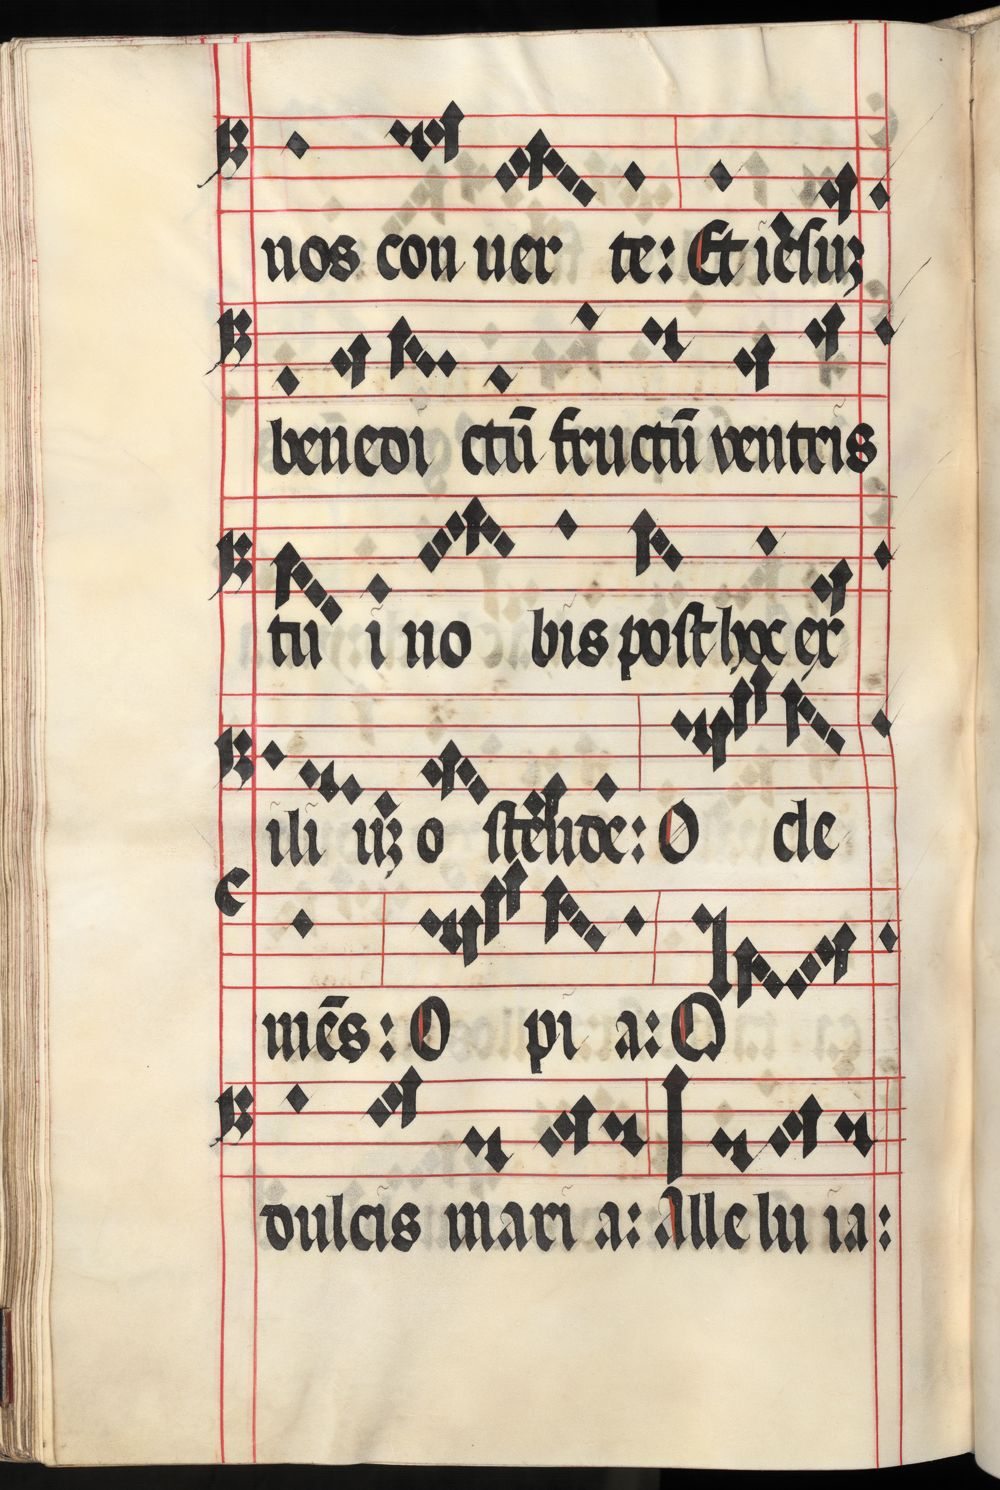 nos con uer te: Et ih̄esuꝫ
ben̄edi ctū fructū ventris
tu i no bis post hoc ex
ili iuꝫ o stēnde: O cle
mēs: O pi a: O
dulcis mari a: alle lu ia: